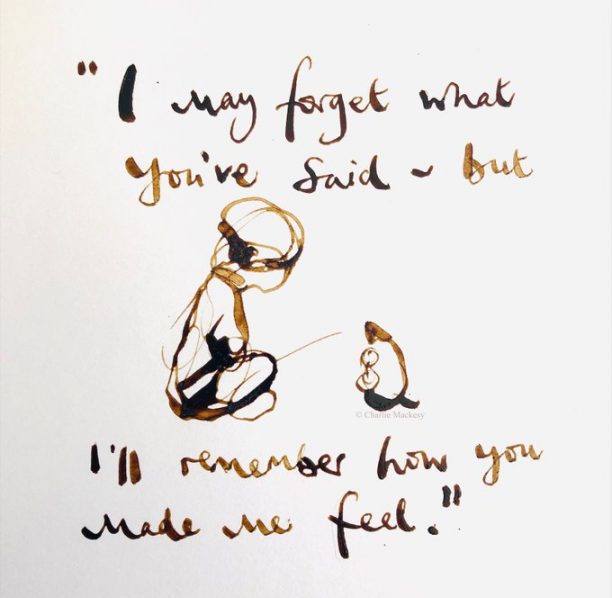 "I may forget what
you've said ~ but
© Charlie Mackesy
I'll remember how you
made me feel."